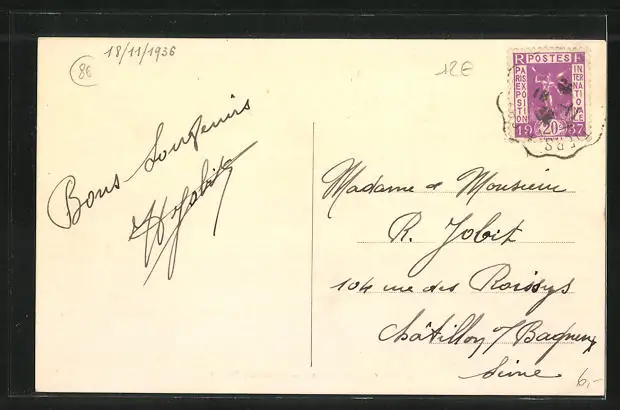 18/11/1936
86
12€
RF
POSTES
PARIS EXPOSITION
INTERNATIONALE
1937
20c
Bons Souvenirs
Madame & Monsieur
R. Jobit
104 rue des Roissys
Châtillon s/ Bagneux
Seine
6,-